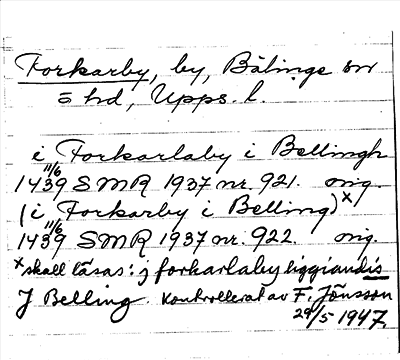 Forkarby, by, Bälinge sn
o hd, Upps. l.
i Forkarlaby i Bellingh
11/6 1439 SMR 1937 nr. 921. orig.
(i Forkarby i Belling)x
11/6 1439 SMR 1937 nr. 922. orig.
x skall läsas: j forkarlaby liggiandis
J Belling. Kontrollerat av F. Jönsson
29/5 1947.